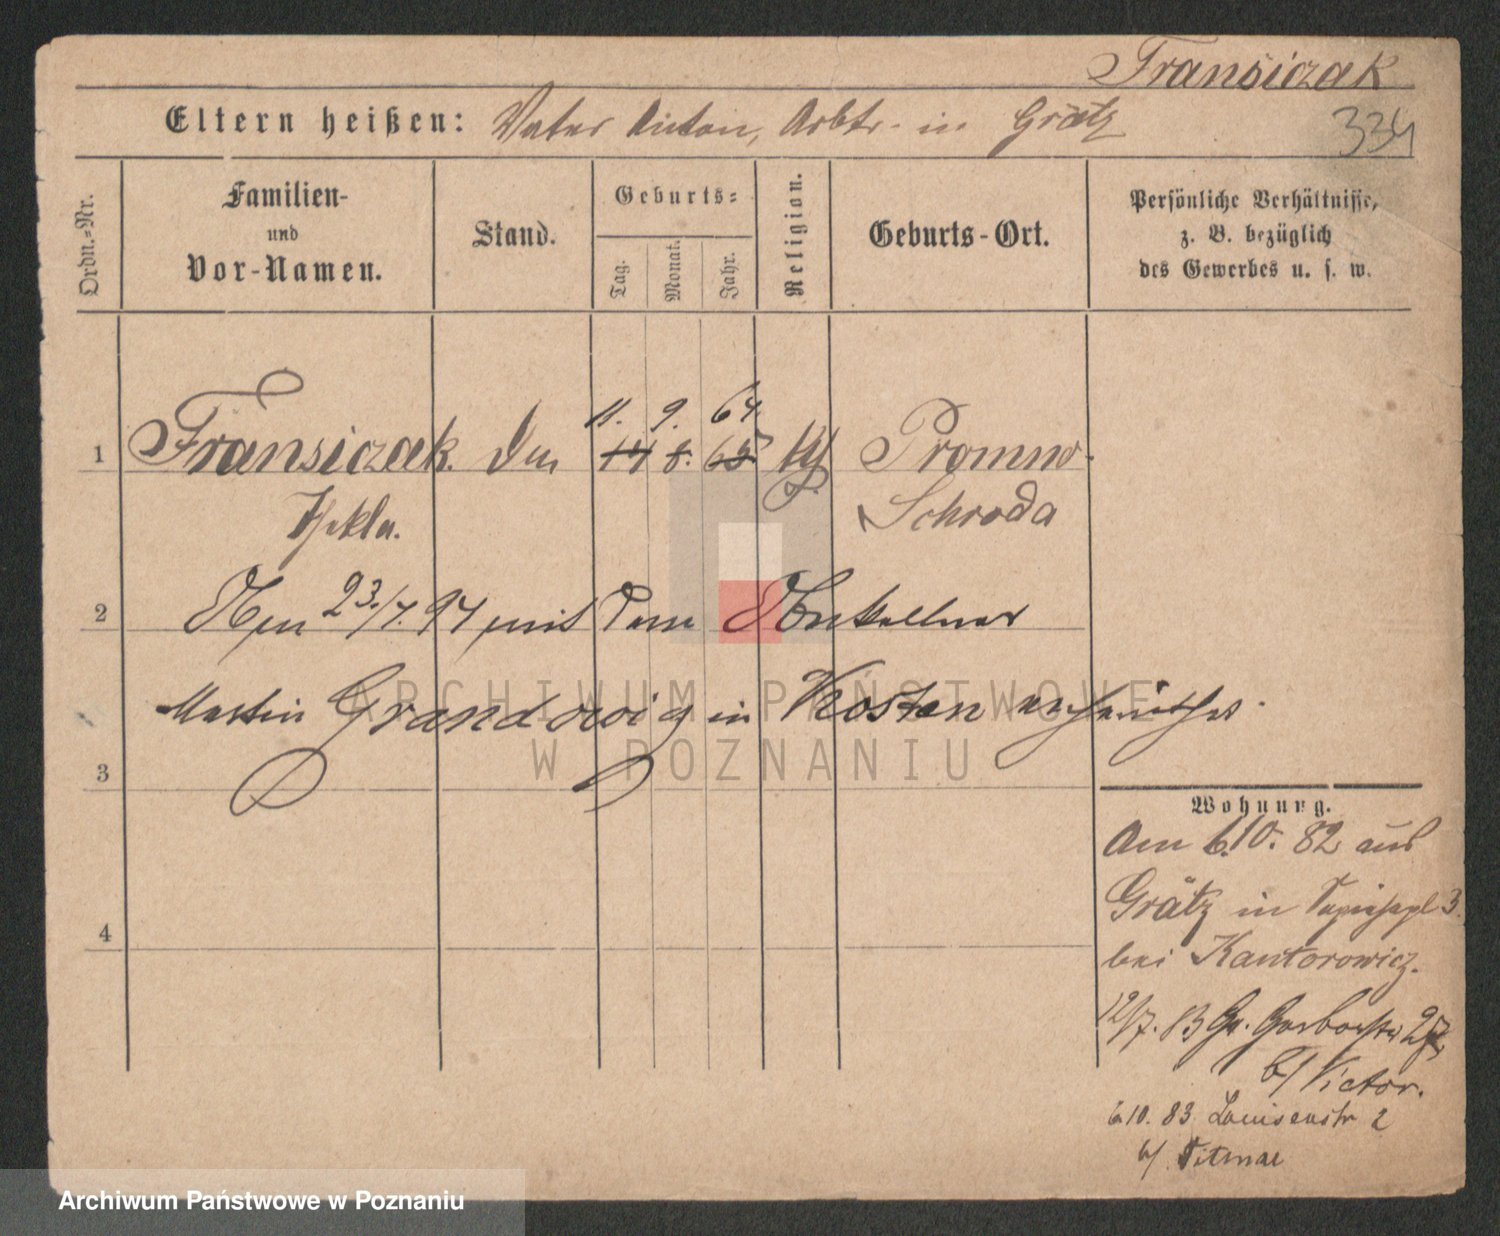 Fransiczak
Eltern heißen: Vater Anton, Arbtr. in Grätz
334
Ordn.-Nr.
Familien-
und
Vor-Namen.
Stand.
Geburts-
Tag.
Monat.
Jahr.
Religion.
Geburts-Ort.
Persönliche Verhältnisse,
z. B. bezüglich
des Gewerbes u. s. w.
11. 9. 64
1 Fransiczak 14 8. 65 Promno-
Thekla. Schroda
2 23./7. 94 mit dem
Martin in Kosten verheirathet.
3
4
Wohnung.
Am 6.10. 82 aus
Grätz in 3.
bei Kantorowicz.
12/7. 83 Gr. Gerberstr
b/ Victor.
6.10. 83 Louisenstr 2
b/.
ARCHIWUM PAŃSTWOWE
W POZNANIU
Archiwum Państwowe w Poznaniu